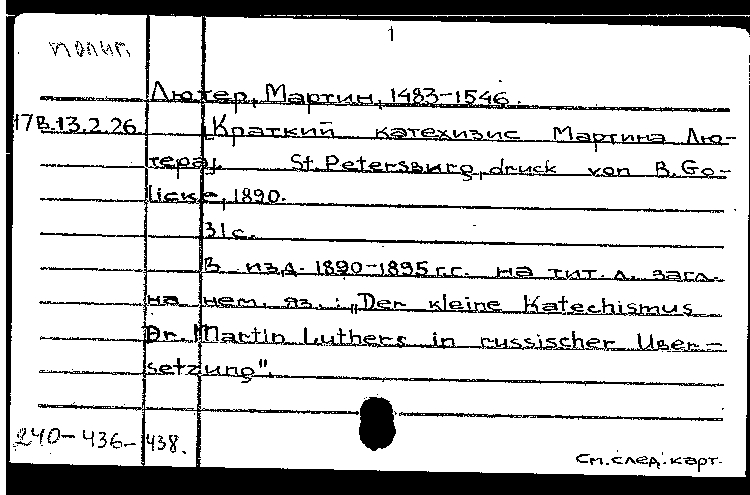 1
Лютер, Мартин, 1483-1546.
17В.13.2.26 [Краткий катехизис Мартина Лю-
тера]. St. Petersburg, druck von R. Go-
licke, 1890.
31 с.
В изд. 1890-1895 г.г. на тит. л. загл.
на нем. яз.: „Der kleine Katechismus
Dr. Martin Luthers in russischer Uber-
setzung".
240-436-438.
См. след. карт.